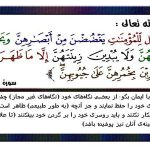 ـه تعالى :
لِّلْمُؤْمِنَـٰتِ يَغْضُضْنَ مِنْ أَبْصَـٰرِهِنَّ وَيَحْفَظْنَ
وَلَا يُبْدِينَ زِينَتَهُنَّ إِلَّا مَا ظَهَرَ
بِخُمُرِهِنَّ عَلَىٰ جُيُوبِهِنَّ
سورة
ایمان بگو: از بعضی نگاه‌های خود (نگاه‌های غیر مجاز) چشم
خود را حفظ نمایند و جز آنچه (به طور طبیعی) ظاهر است،
نکنند و باید روسری خود را بر گردن خود بیفکنند (تا
آنان نیز پوشیده باشد)